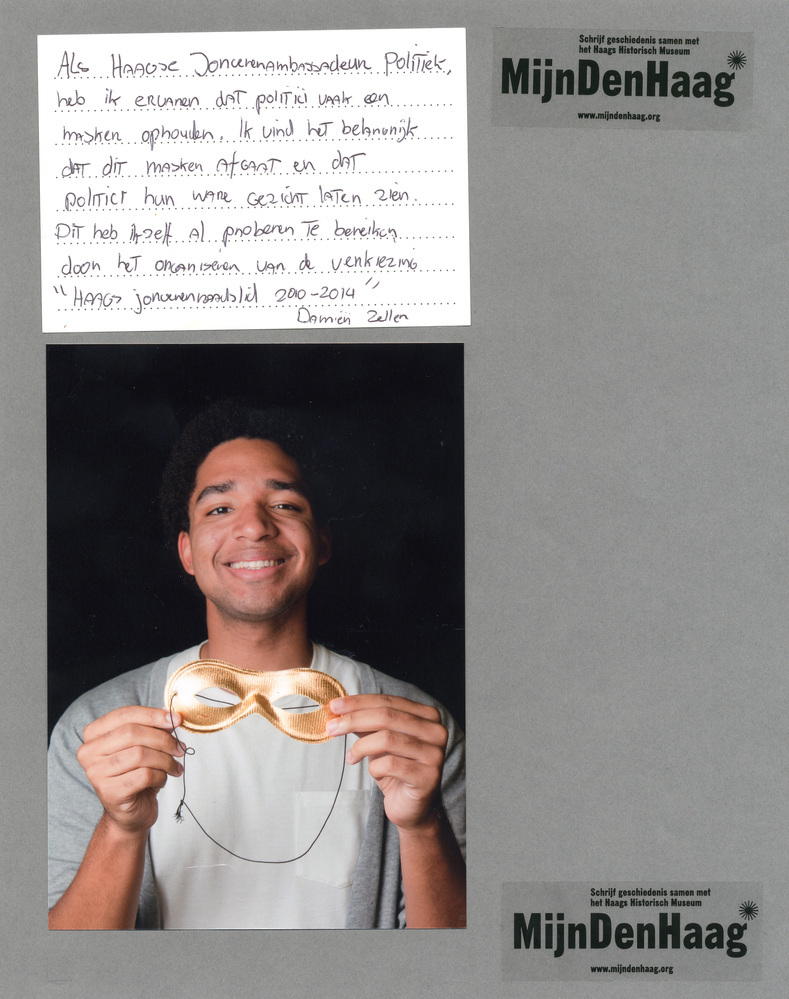 Als Haagse Jongerenambassadeur Politiek,
heb ik ervaren dat politici vaak een
masker ophouden. Ik vind het belangrijk
dat dit masker afgaat en dat
politici hun ware gezicht laten zien.
Dit heb ikzelf al proberen te bereiken
door het organiseren van de verkiezing
"Haags jongerenraadslid 2010-2014"
Damiën Zeller
Schrijf geschiedenis samen met
het Haags Historisch Museum
MijnDenHaag
www.mijndenhaag.org
Schrijf geschiedenis samen met
het Haags Historisch Museum
MijnDenHaag
www.mijndenhaag.org